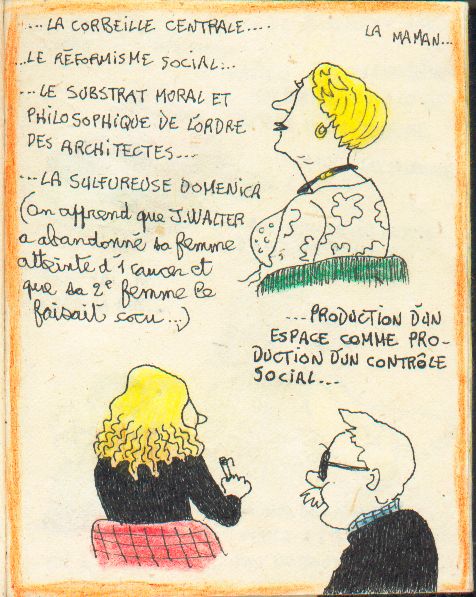 ....LA CORBEILLE CENTRALE....
LA MAMAN...
...LE RÉFORMISME SOCIAL...
...LE SUBSTRAT MORAL ET
PHILOSOPHIQUE DE L'ORDRE
DES ARCHITECTES...
...LA SULFUREUSE DOMENICA
(on apprend que J.WALTER
a abandonné sa femme
atteinte d'1 cancer et
que sa 2e femme le
faisait cocu...)
...PRODUCTION D'UN
ESPACE COMME PRO-
DUCTION D'UN CONTRÔLE
SOCIAL...